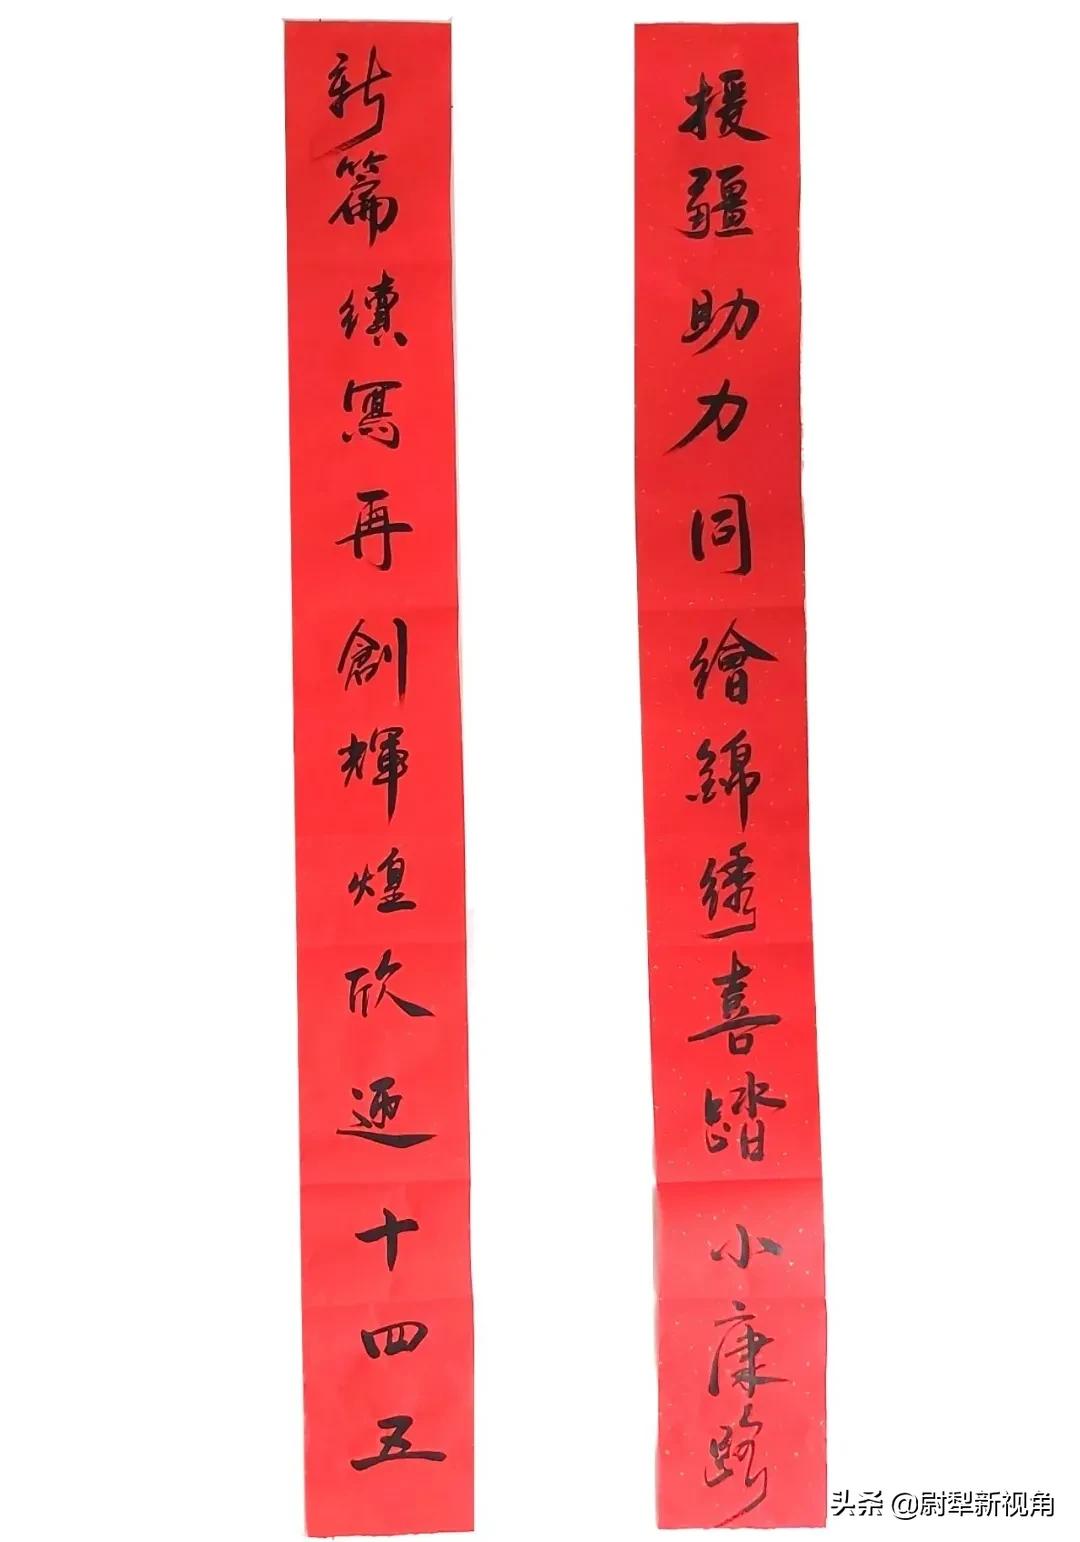 援疆助力同繪錦绣喜踏小康路
新篇續寫再創輝煌欣迎十四五
头条 @尉犁新视角